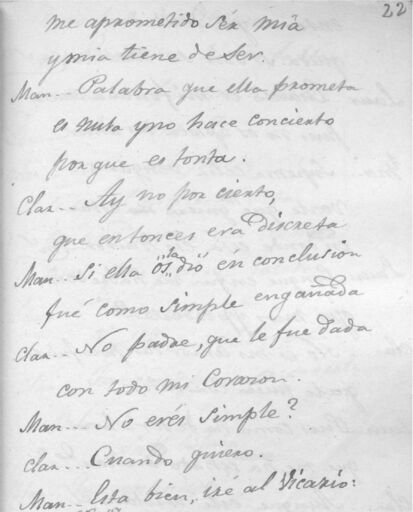 22
me aprometido Ser mia
y mia tiene de Ser.
Man... Palabra que ella prometa
es nula y no hace concierto
porque es tonta.
Clar... Ay no por cierto,
que entonces era discreta
Man... Si ella os la dió en conclusion
fué como simple engañada
Clar... No padre, que le fue dada
con todo mi Corazon.
Man... No eres simple?
Clar... Cuando quiero.
Man... Esta bien, iré al Vicario: